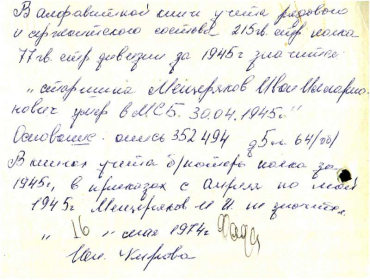 В алфавитной книги учета рядового
и сержантского состава 215 гв. стр. полка
77 гв. стр. дивизии за 1945 г значится:
"старшина Мещеряков Иван Илларио-
нович умер в МСБ. 30.04.1945г"
Основание: опись 352494 д 5 л. 64/об/
В книгах учета б/потерь полка за
1945г, в приказах с апреля по май
1945г Мещеряков И И не значится.
"16" мая 1974г
Кирова